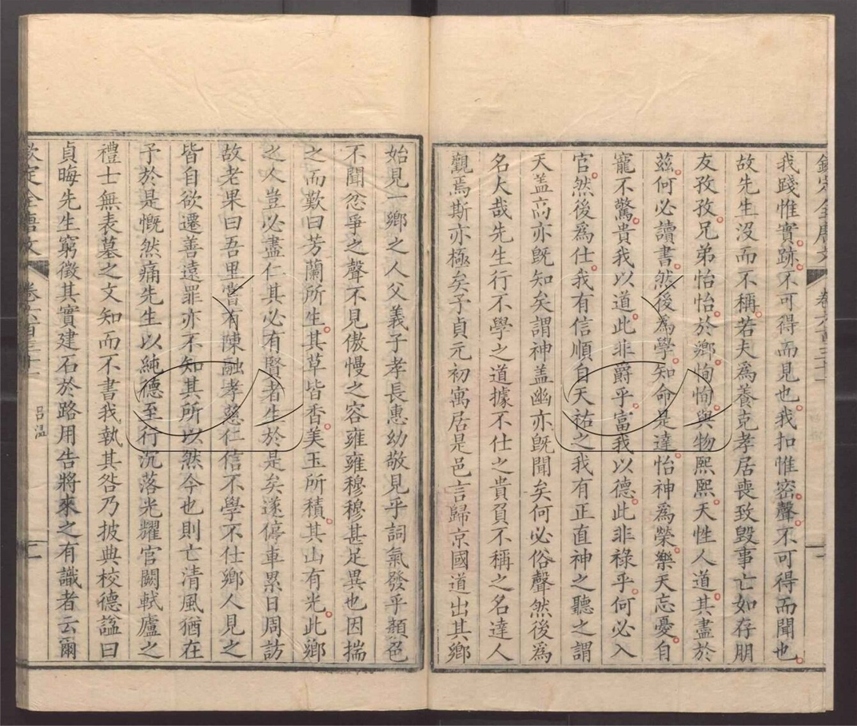 欽定全唐文 卷六百三十一
我踐惟實跡不可得而見也我扣惟密聲不可得而聞也
故先生沒而不稱若夫為養克孝居喪致毀事亡如存朋
友孜孜兄弟怡怡於鄉恂恂與物熙熙天性人道其盡於
茲何必讀書然後為學知命是達怡神為榮樂天忘憂自
寵不驚貴我以道此非爵乎富我以德此非祿乎何必入
官然後為仕我有信順自天祐之我有正直神之聽之謂
天蓋高亦既知矣謂神蓋幽亦既聞矣何必俗聲然後為
名大哉先生行不學之道據不仕之貴負不稱之名達人
觀焉斯亦極矣予貞元初寓居是邑言歸京國道出其鄉
始見一鄉之人父義子孝長惠幼敬見乎詞氣發乎顏色
不聞忿爭之聲不見傲慢之容雍雍穆穆甚足異也因揣
之而歎曰芳蘭所生其草皆香美玉所積其山有光此鄉
之人豈必盡仁其必有賢者生於是矣遂停車累日周訪
故老果曰吾里嘗有陳融孝慈仁信不學不仕鄉人見之
皆自欲遷善遠罪亦不知其所以然今也則亡清風猶在
予於是慨然痛先生以純德至行沉落光耀官闕軾廬之
禮士無表墓之文知而不書我執其咎乃披典校德諡曰
貞晦先生窮徵其實建石於路用告將來之有識者云爾
欽定全唐文 卷六百三十一 呂溫 二